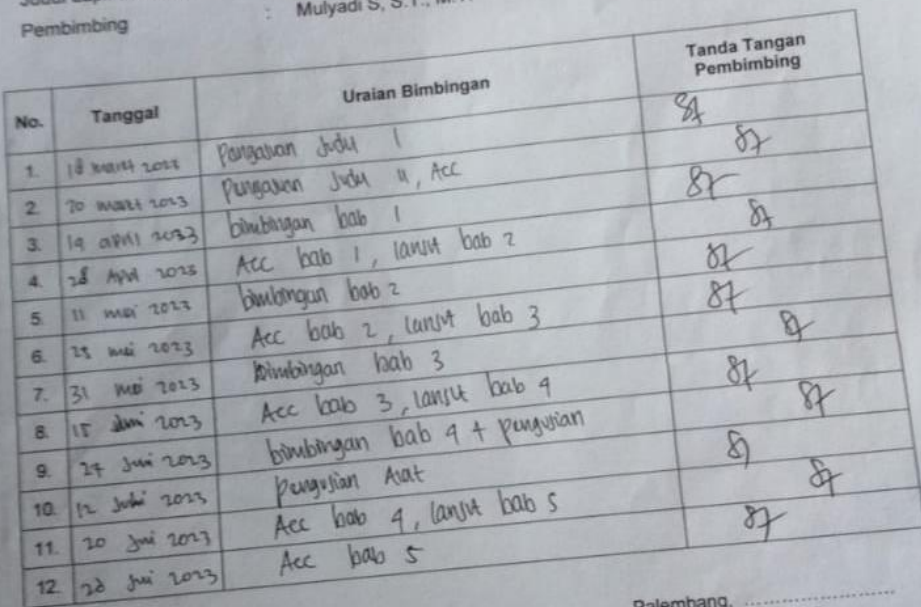 Pembimbing : Mulyadi S, S.T.,
No. Tanggal Uraian Bimbingan Tanda Tangan Pembimbing
1. 18 maret 2023 Pengajuan Judul 1
2. 20 maret 2023 Pengajuan Judul 4, Acc
3. 19 april 2023 bimbingan bab 1
4. 28 April 2023 Acc bab 1, lanjut bab 2
5. 11 mei 2023 bimbingan bab 2
6. 25 mei 2023 Acc bab 2, lanjut bab 3
7. 31 mei 2023 bimbingan bab 3
8. 15 Juni 2023 Acc bab 3, lanjut bab 4
9. 2023 bimbingan bab 4 + pengujian
10. 12 2023 pengujian Alat
11. 20 2023 Acc bab 4, lanjut bab 5
12. 2023 Acc bab 5
Palembang,